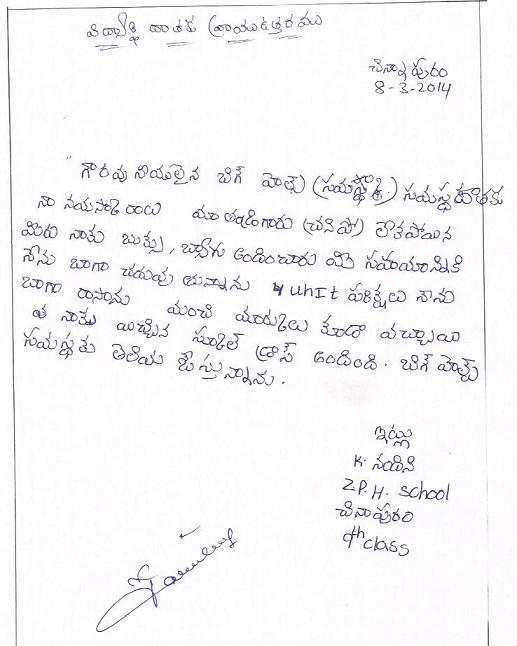 విద్యార్థి దాతకు వ్రాయుఉత్తరము
చిన్నాపురం
8-3-2014
గౌరవ నియులైన బిగ్ హెల్ప్ సమస్థదాతకు
నా నమస్కారాలు మా తండ్రిగారు (చనిపో) లేకపోయిన
మిరు నాకు బుక్స్, బ్యాగు అందించారు మి సహాయానికి
నేను బాగా చదువు తున్నాను 4 unit పరిక్షలు నాను
బాగా రాసాను మంచి మార్కులు కూడా వచ్చాయి
నాకు యిచ్చిన స్కూల్ డ్రాస్ అందింది. బిగ్ హెల్ప్
సమస్థకు తెలియ జేస్తున్నాను.
ఇట్లు
K. నందిని
Z.P.H. school
చినాపురం
9th class